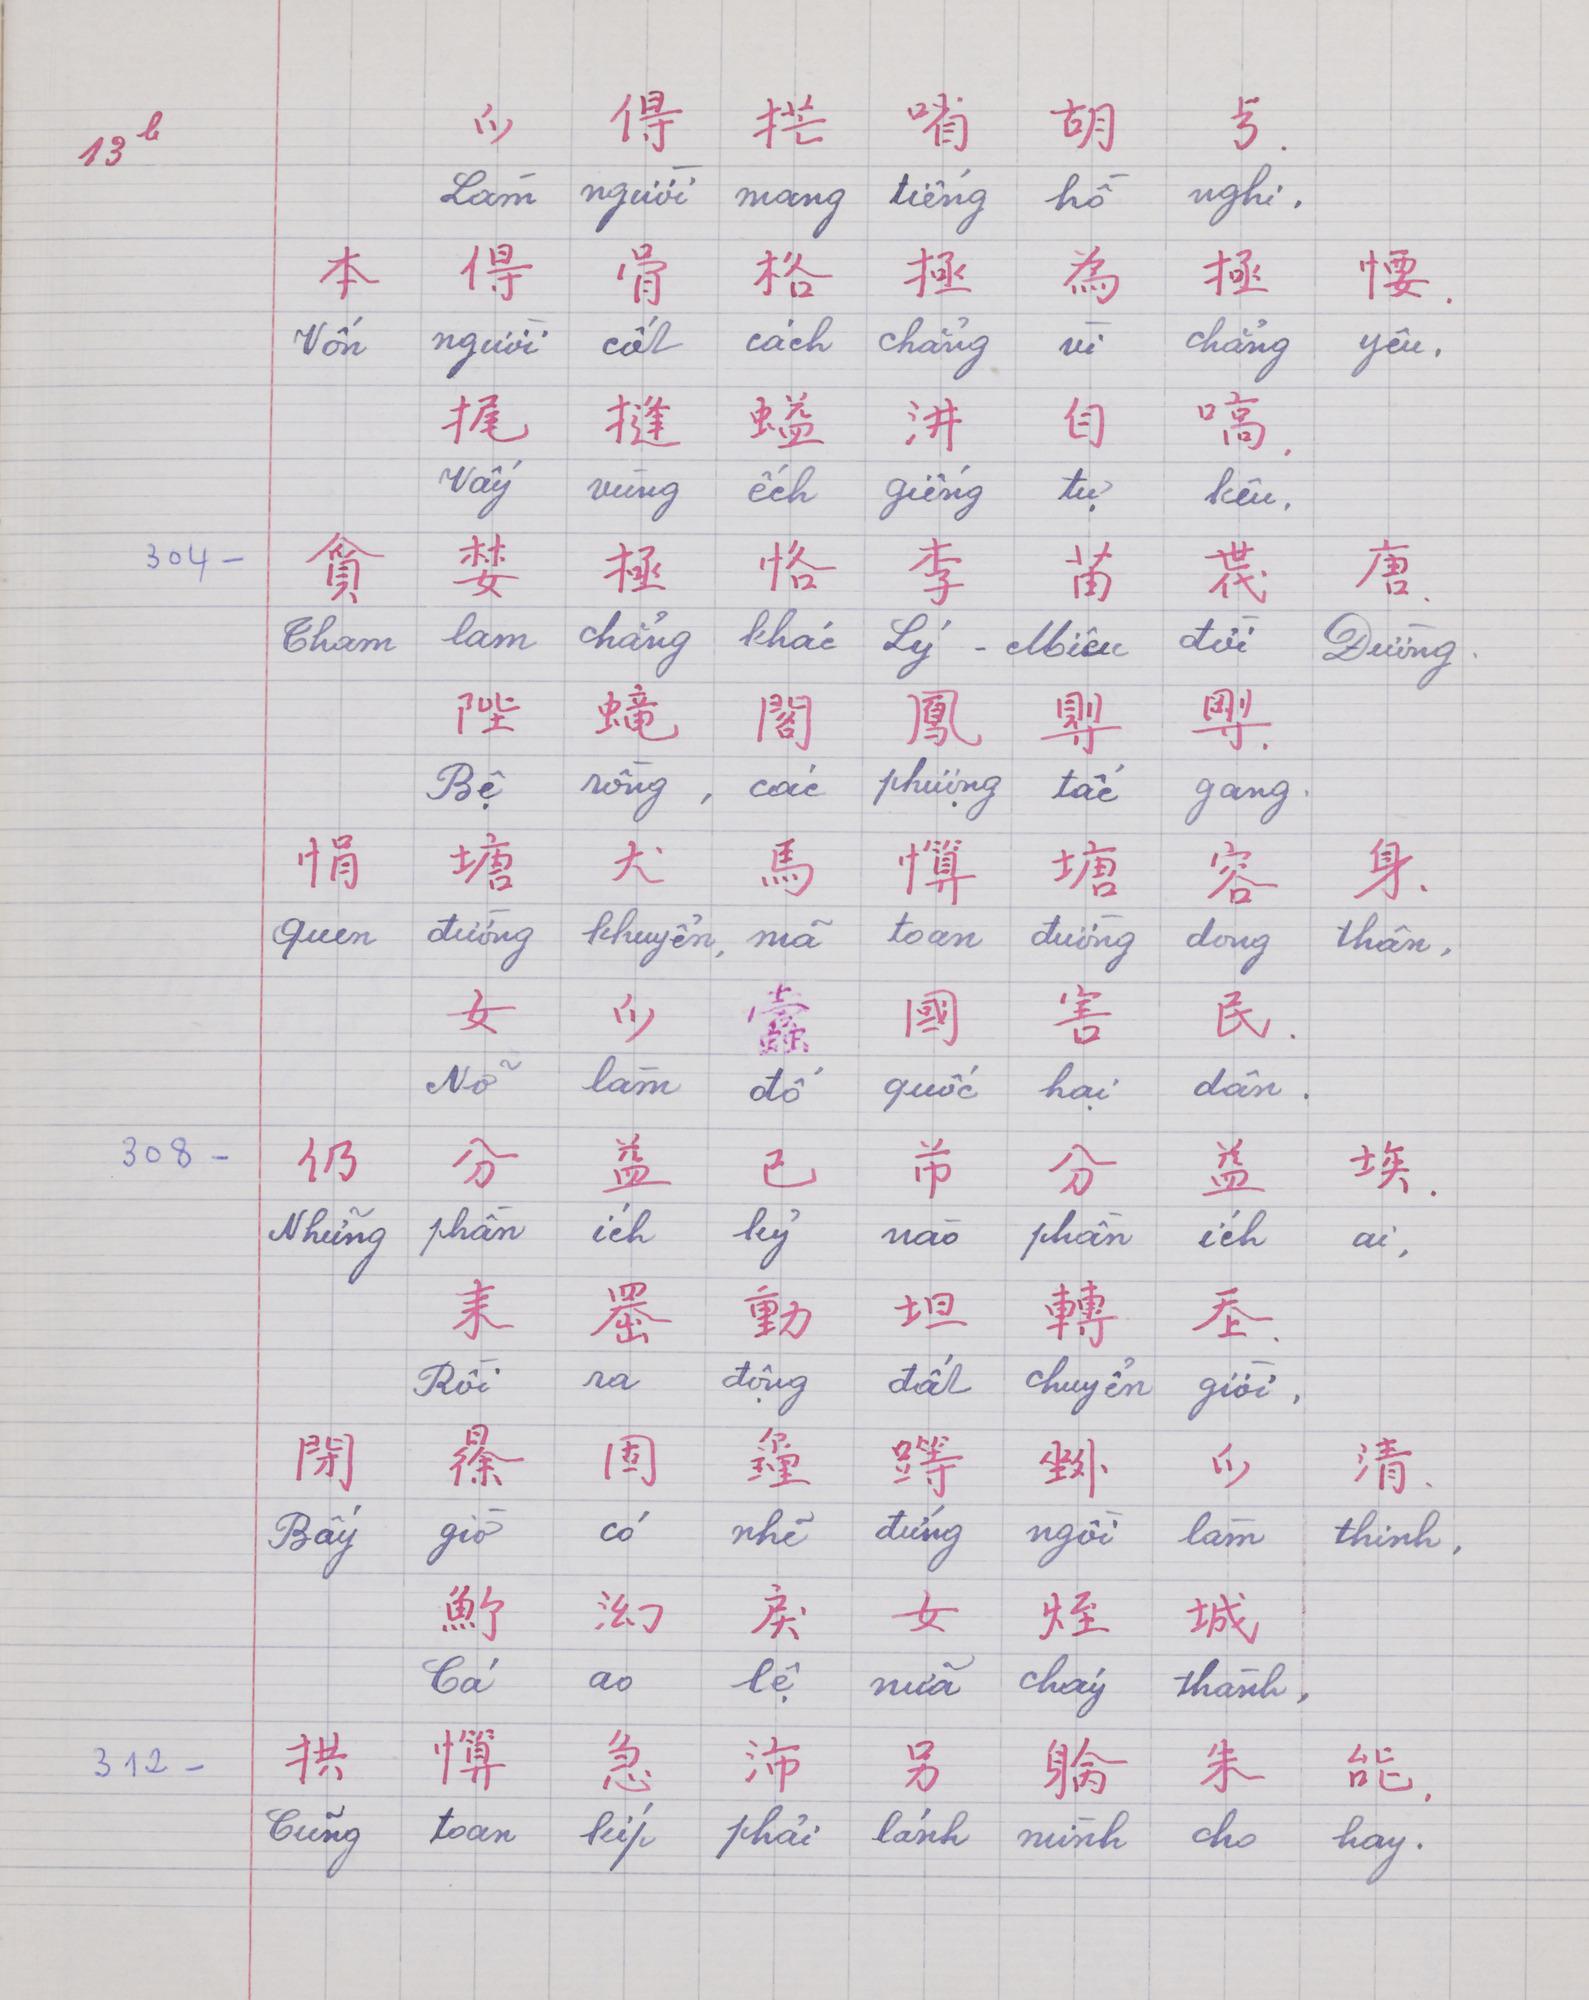 13b
𬈋 㝵 恾 哨 胡 㐌.
Làm người mang tiếng hồ nghi.
本 㝵 骨 格 極 為 極 㤇.
Vốn người cốt cách chẳng vì chẳng yêu.
挀 摓 䗌 汫 自 嗃.
Vẫy vùng ếch giếng tự kêu.
304 - 貪 婪 極 恪 李 苗 茂 唐.
Tham lam chẳng khác Lý - Miêu đời Đường.
陛 蠬 閣 鳳
Bệ rồng, các phượng tấc gang.
悁 塘 犬 馬 㦖 塘 容 身.
Quen đường khuyển, mã toan đường dong thân.
女 𬈋 蠹 國 害 民.
Nỡ làm đố quốc hại dân.
308 - 仍 分 益 己 芇 分 益 埃.
Những phần ích kỷ nào phần ích ai,
耒 𦋦 動 坦 轉 𡗶.
Rồi ra động đất chuyển giời,
閉 𣇞 固 𨤰 等 𡎢 𬈋 清.
Bấy giờ có nhẽ đứng ngồi làm thinh,
𩵜 泑 戾 女 烴 城
Cá ao lệ nữa cháy thành,
312 - 拱 㦖 急 沛 另 𨉓 朱 能.
Cũng toan kíp phải lánh mình cho hay.